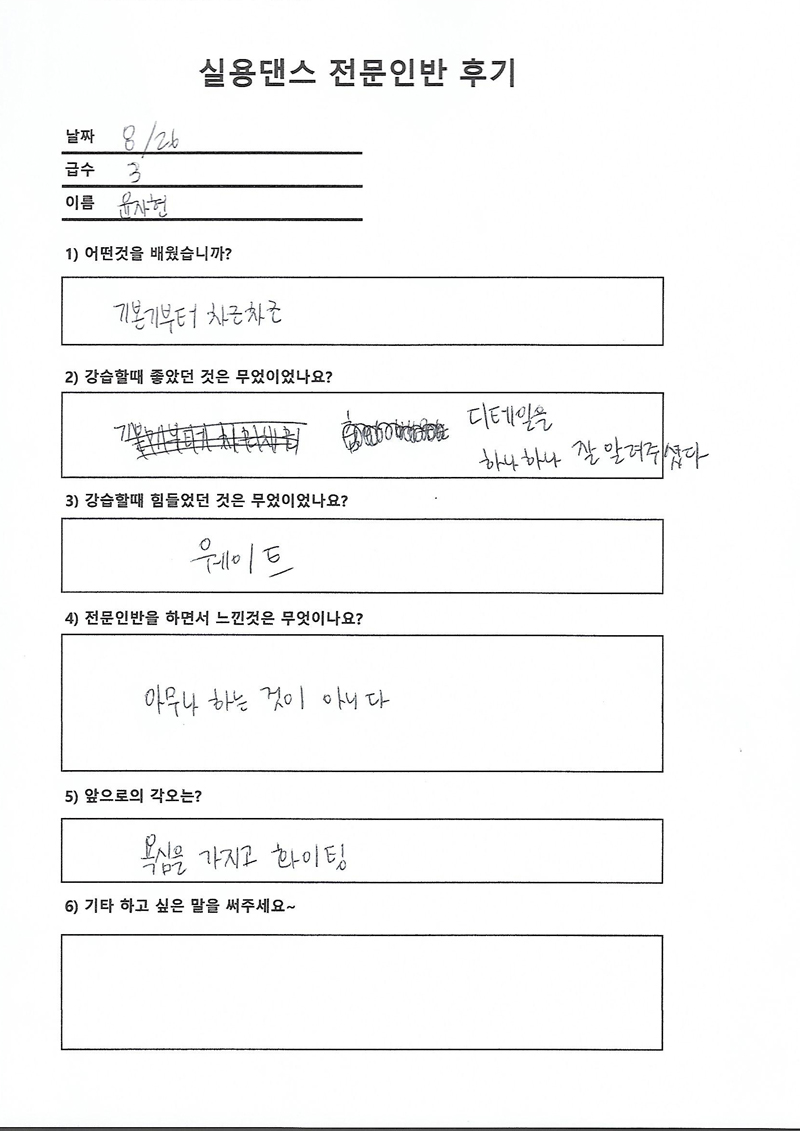 실용댄스 전문인반 후기
날짜 8/26
급수 3
이름 윤자현
1) 어떤것을 배웠습니까?
기본기부터 차근차근
2) 강습할때 좋았던 것은 무었이었나요?
디테일을
하나하나 잘 알려주셨다
3) 강습할때 힘들었던 것은 무었이었나요?
웨이트
4) 전문인반을 하면서 느낀것은 무엇이나요?
아무나 하는 것이 아니다
5) 앞으로의 각오는?
욕심을 가지고 화이팅
6) 기타 하고 싶은 말을 써주세요~